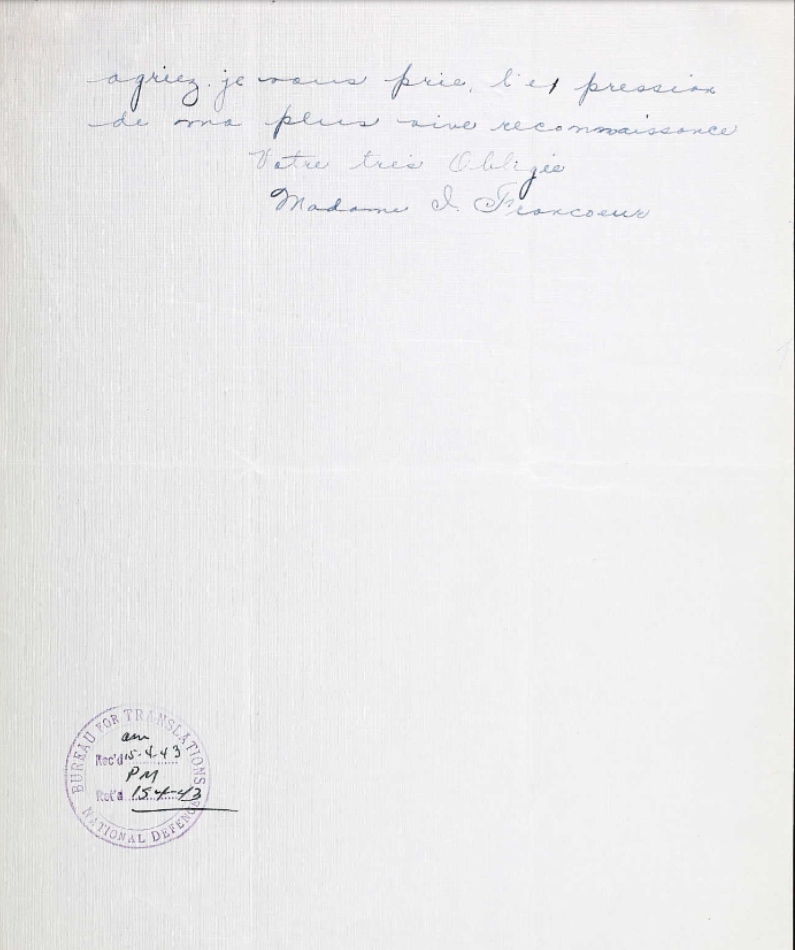 agriez je vous prie, l'expression
de ma plus vive reconnaissance
Votre très Obligée
Madame I. Francoeur
BUREAU FOR TRANSLATIONS
am
Rec'd 15-4-43
PM
Ret'd 15-4-43
NATIONAL DEFENCE